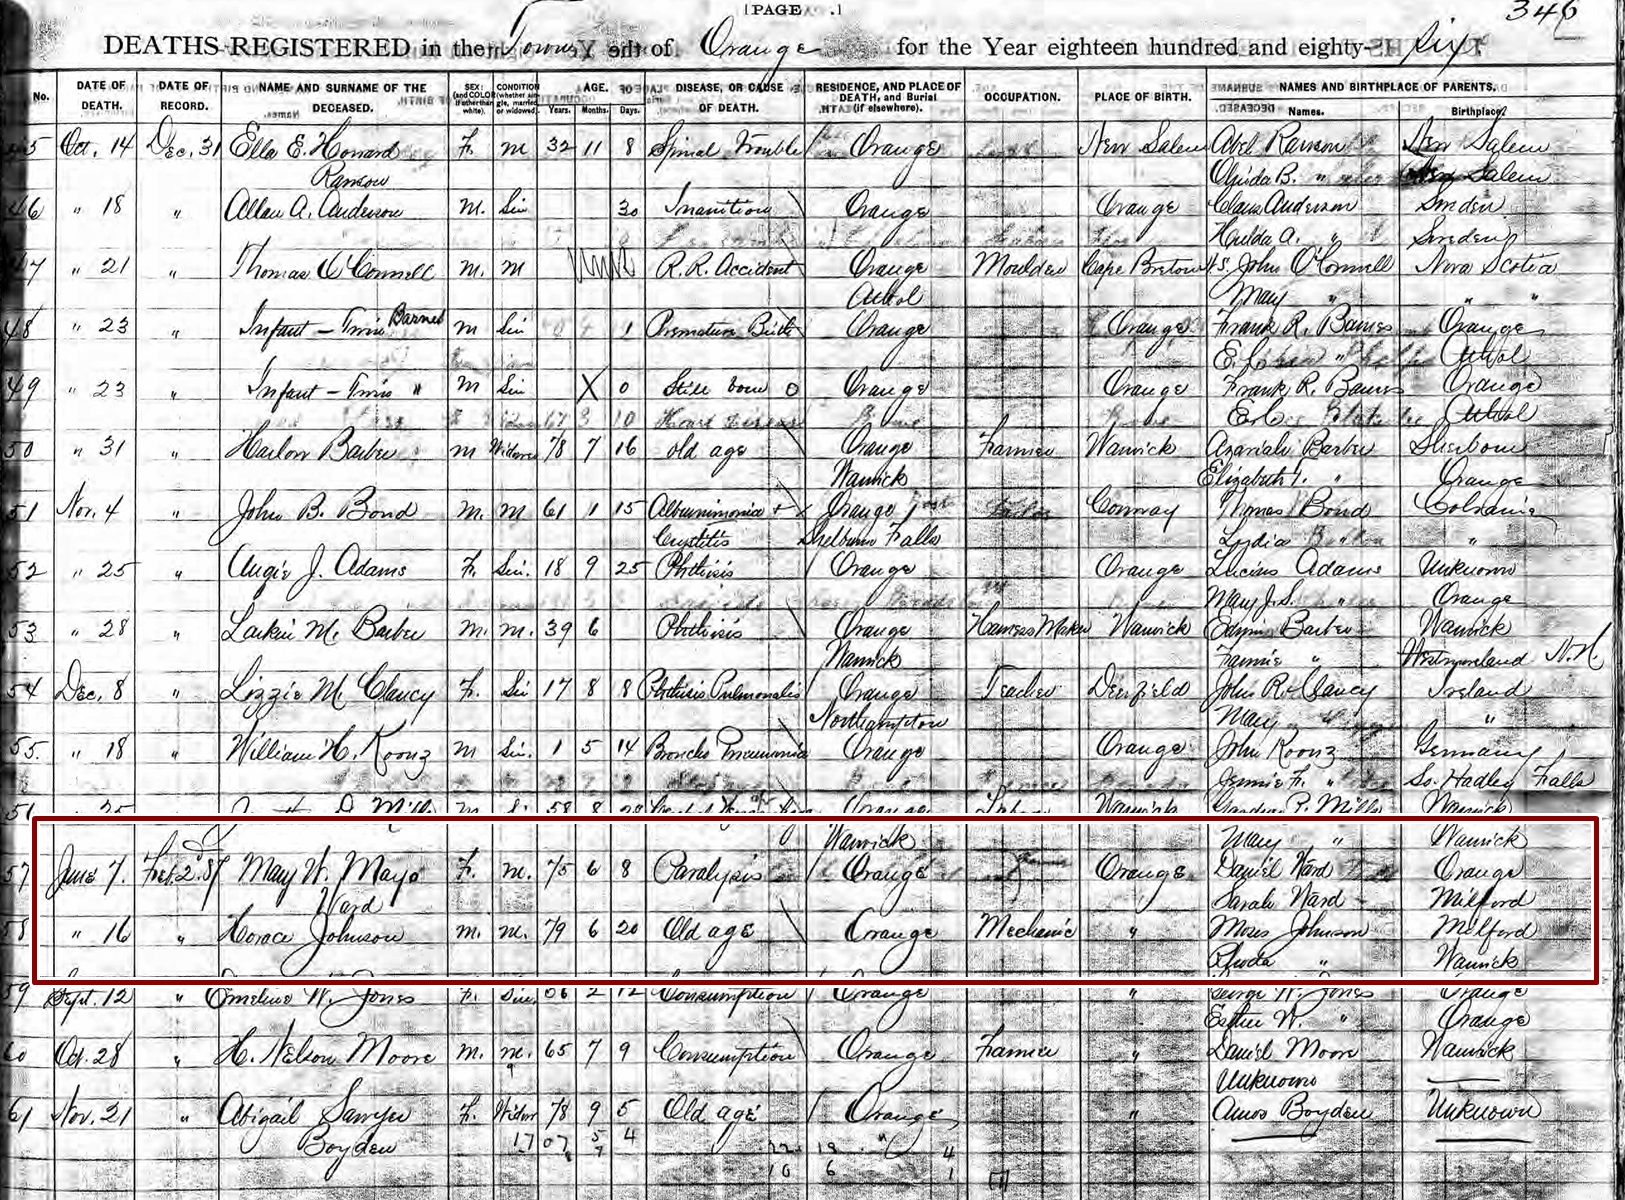 [PAGE .] 346
DEATHS REGISTERED in the Town of Orange for the Year eighteen hundred and eighty-six
No. DATE OF DEATH. DATE OF RECORD. NAME AND SURNAME OF THE DECEASED. SEX: (and COLOR if other than white). CONDITION (whether single, married, or widowed). AGE. Years. Months. Days. DISEASE, OR CAUSE OF DEATH. RESIDENCE, AND PLACE OF DEATH, and Burial (if elsewhere). OCCUPATION. PLACE OF BIRTH. NAMES AND BIRTHPLACE OF PARENTS. Names. Birthplace.
45 Oct. 14 Dec. 31 Ella E. Howard F. M 32 11 8 Spinal Trouble Orange New Salem Abel Ranson New Salem
Ranson B. " New Salem
46 " 18 " Allan A. Anderson M. Sin 30 Inanition Orange Orange Claus Anderson Sweden
Hulda A. " Sweden
47 " 21 " Thomas O'Connell M. M R. R. Accident Orange Moulder Cape Breton N.S. John O'Connell Nova Scotia
Athol Mary " " "
48 " 23 Infant - Twin Barnes M Sin 1 Premature Birth Orange Orange Frank R. Barnes Orange
" Athol
49 " 23 " Infant - Twin " M Sin X 0 Still born 0 Orange Orange Frank R. Barnes Orange
Athol
50 " 31 " Harlon Barber M Widower 78 7 16 old age Orange Farmer Warwick Azariah Barber Sherborn
Warwick Elizabeth " Orange
51 Nov. 4 " John B. Bond M. M 61 1 15 Albuminuria + Orange Conway Thomas Bond Colraine
Cystitis Shelburn Falls Lydia " "
52 " 25 " Angie J. Adams F. Sin. 18 9 25 Phthisis Orange Orange Lucius Adams Unknown
Mary J. S. " Orange
53 " 28 " Larkin M. Barber M. M. 39 6 Phthisis Orange Harness Maker Warwick Edwin Barber Warwick
Warwick Fannie " Westmoreland N.H.
54 Dec. 8 " Lizzie M Clancy F. Sin 17 8 8 Phthisis Pulmonalis Orange Teacher Deerfield John R. Clancy Ireland
Northampton Mary "
55. " 18 " William H. Koonz M Sin. 1 5 14 Broncho Pneumonia Orange Orange John Koonz Germany
Jennie F. " So. Hadley Falls
Warwick Mary " Warwick
57 June 7. Feb. 2. 87 Mary W. Mayo F. M. 75 6 8 Paralysis Orange Orange Daniel Ward Orange
Ward Sarah Ward Milford
58 " 16 " Horace Johnson M. M. 79 6 20 Old age Orange Mechanic " Moses Johnson Milford
Rhoda " Warwick
59 Sept. 12 " Emeline W. Jones F. Sin. 2 12 Consumption Orange " George W. Jones Orange
Esther W. " Orange
60 Oct. 28 " H. Nelson Moore M. M. 65 7 9 Consumption Orange Farmer " Daniel Moore Warwick
Unknown
61 Nov. 21 " Abigail Sawyer F. Widow 78 9 5 Old age Orange, " Amos Boyden Unknown
Boyden 1707 5 4